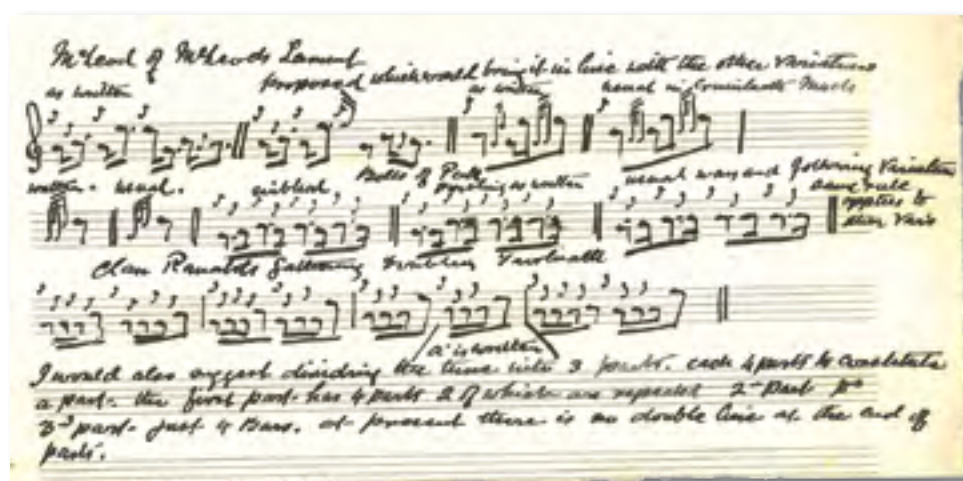 McLeod of McLeods Lament
proposed which would bring it in line with the other Variations
as written
as written usual in Crunluath Machs
written. usual. doubled. Bells of Perth
opening as written usual way and following Variation
same rule
applies to
other Vars
Clan Ranalds Gathering doubling Taorluath
a is written
I would also suggest dividing the tune into 3 parts. each 4 parts to constitute
a part. the first part has 4 parts 2 of which are repeated 2nd Part Do
3d part. just 4 Bars. at present there is no double line at the end of
parts.